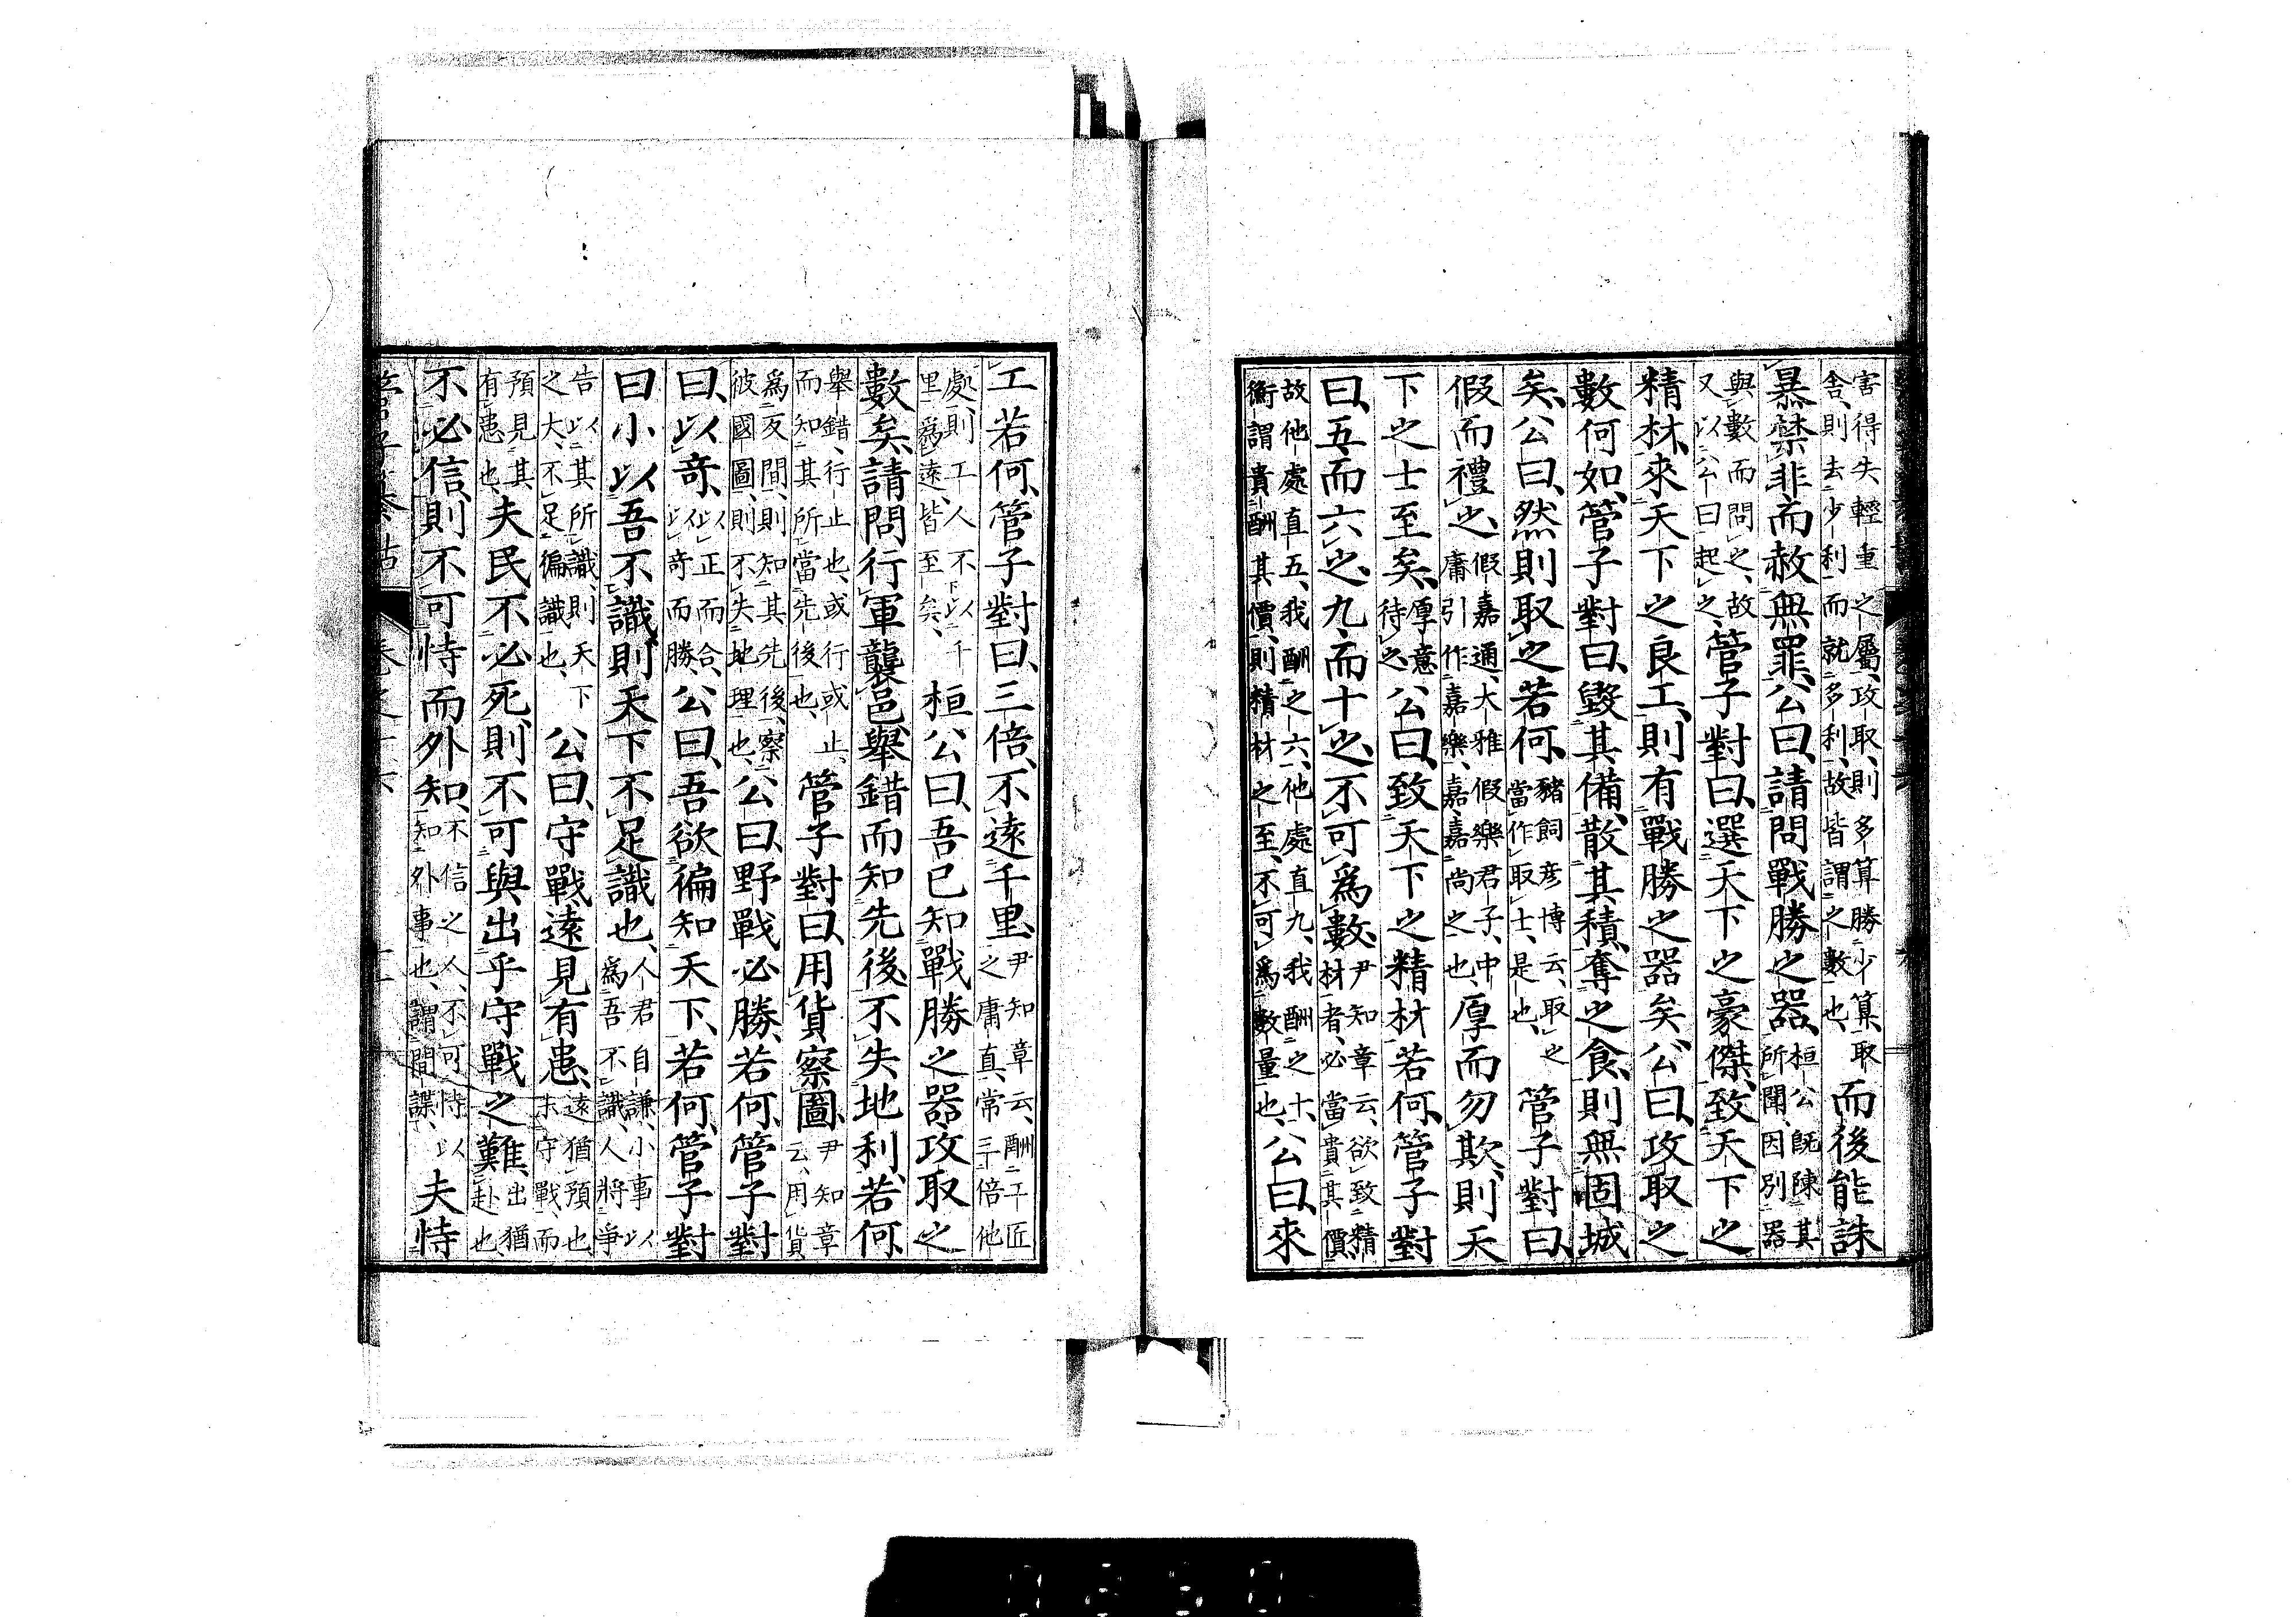 害得失輕重之屬、攻取、則多算勝少算、取
舍、則去少利而就多利、故皆謂之數也、而後能誅
暴禁非而赦無罪、公曰、請問戰勝之器、桓公既陳其所聞、因別器
與數而問之、故又以公曰起之、管子對曰、選天下之豪傑、致天下之
精材、來天下之良工、則有戰勝之器矣、公曰、攻取之
數何如、管子對曰、毀其備、散其積、奪之食、則無固城
矣、公曰、然則取之若何、豬飼彥博云、取之當作取士、是也、管子對曰、
假而禮之、假嘉通、大雅假樂君子、中庸引作嘉樂、嘉、嘉尚之也、厚而勿欺、則天
下之士至矣、厚意待之、公曰、致天下之精材若何、管子對
曰、五而六之、九而十之、不可爲數、尹知章云、欲致精材者、必當貴其價、
故他處直五、我酬之六、他處直九、我酬之十、衡謂貴酬其價、則精材之至、不可爲數量也、公曰、來
工若何、管子對曰、三倍、不遠千里、尹知章云、酬工匠之庸直、常三倍他
處、則工人不以千里爲遠、皆至矣、桓公曰、吾已知戰勝之器、攻取之
數矣、請問行軍襲邑、舉錯而知先後、不失地利、若何、
舉錯、行止也、或行或止、而知其所當先後也、管子對曰、用貨察圖、尹知章云、用貨
爲反間、則知其先後、察彼國圖、則不失地理也、公曰、野戰必勝、若何、管子對
曰、以奇、以正而合、以奇而勝、公曰、吾欲徧知天下、若何、管子對
曰、小以吾不識、則天下不足識也、人君自謙、小事以爲吾不識、人將爭
告以其所識、則天下之大、不足徧識也、公曰、守戰、遠見有患、遠猶預也、未守戰、而
預見其有患也、夫民不必死、則不可與出乎守戰之難、出猶赴也、
不必信、則不可恃而外知、不信之人、不可恃以知外事也、謂間諜、夫恃